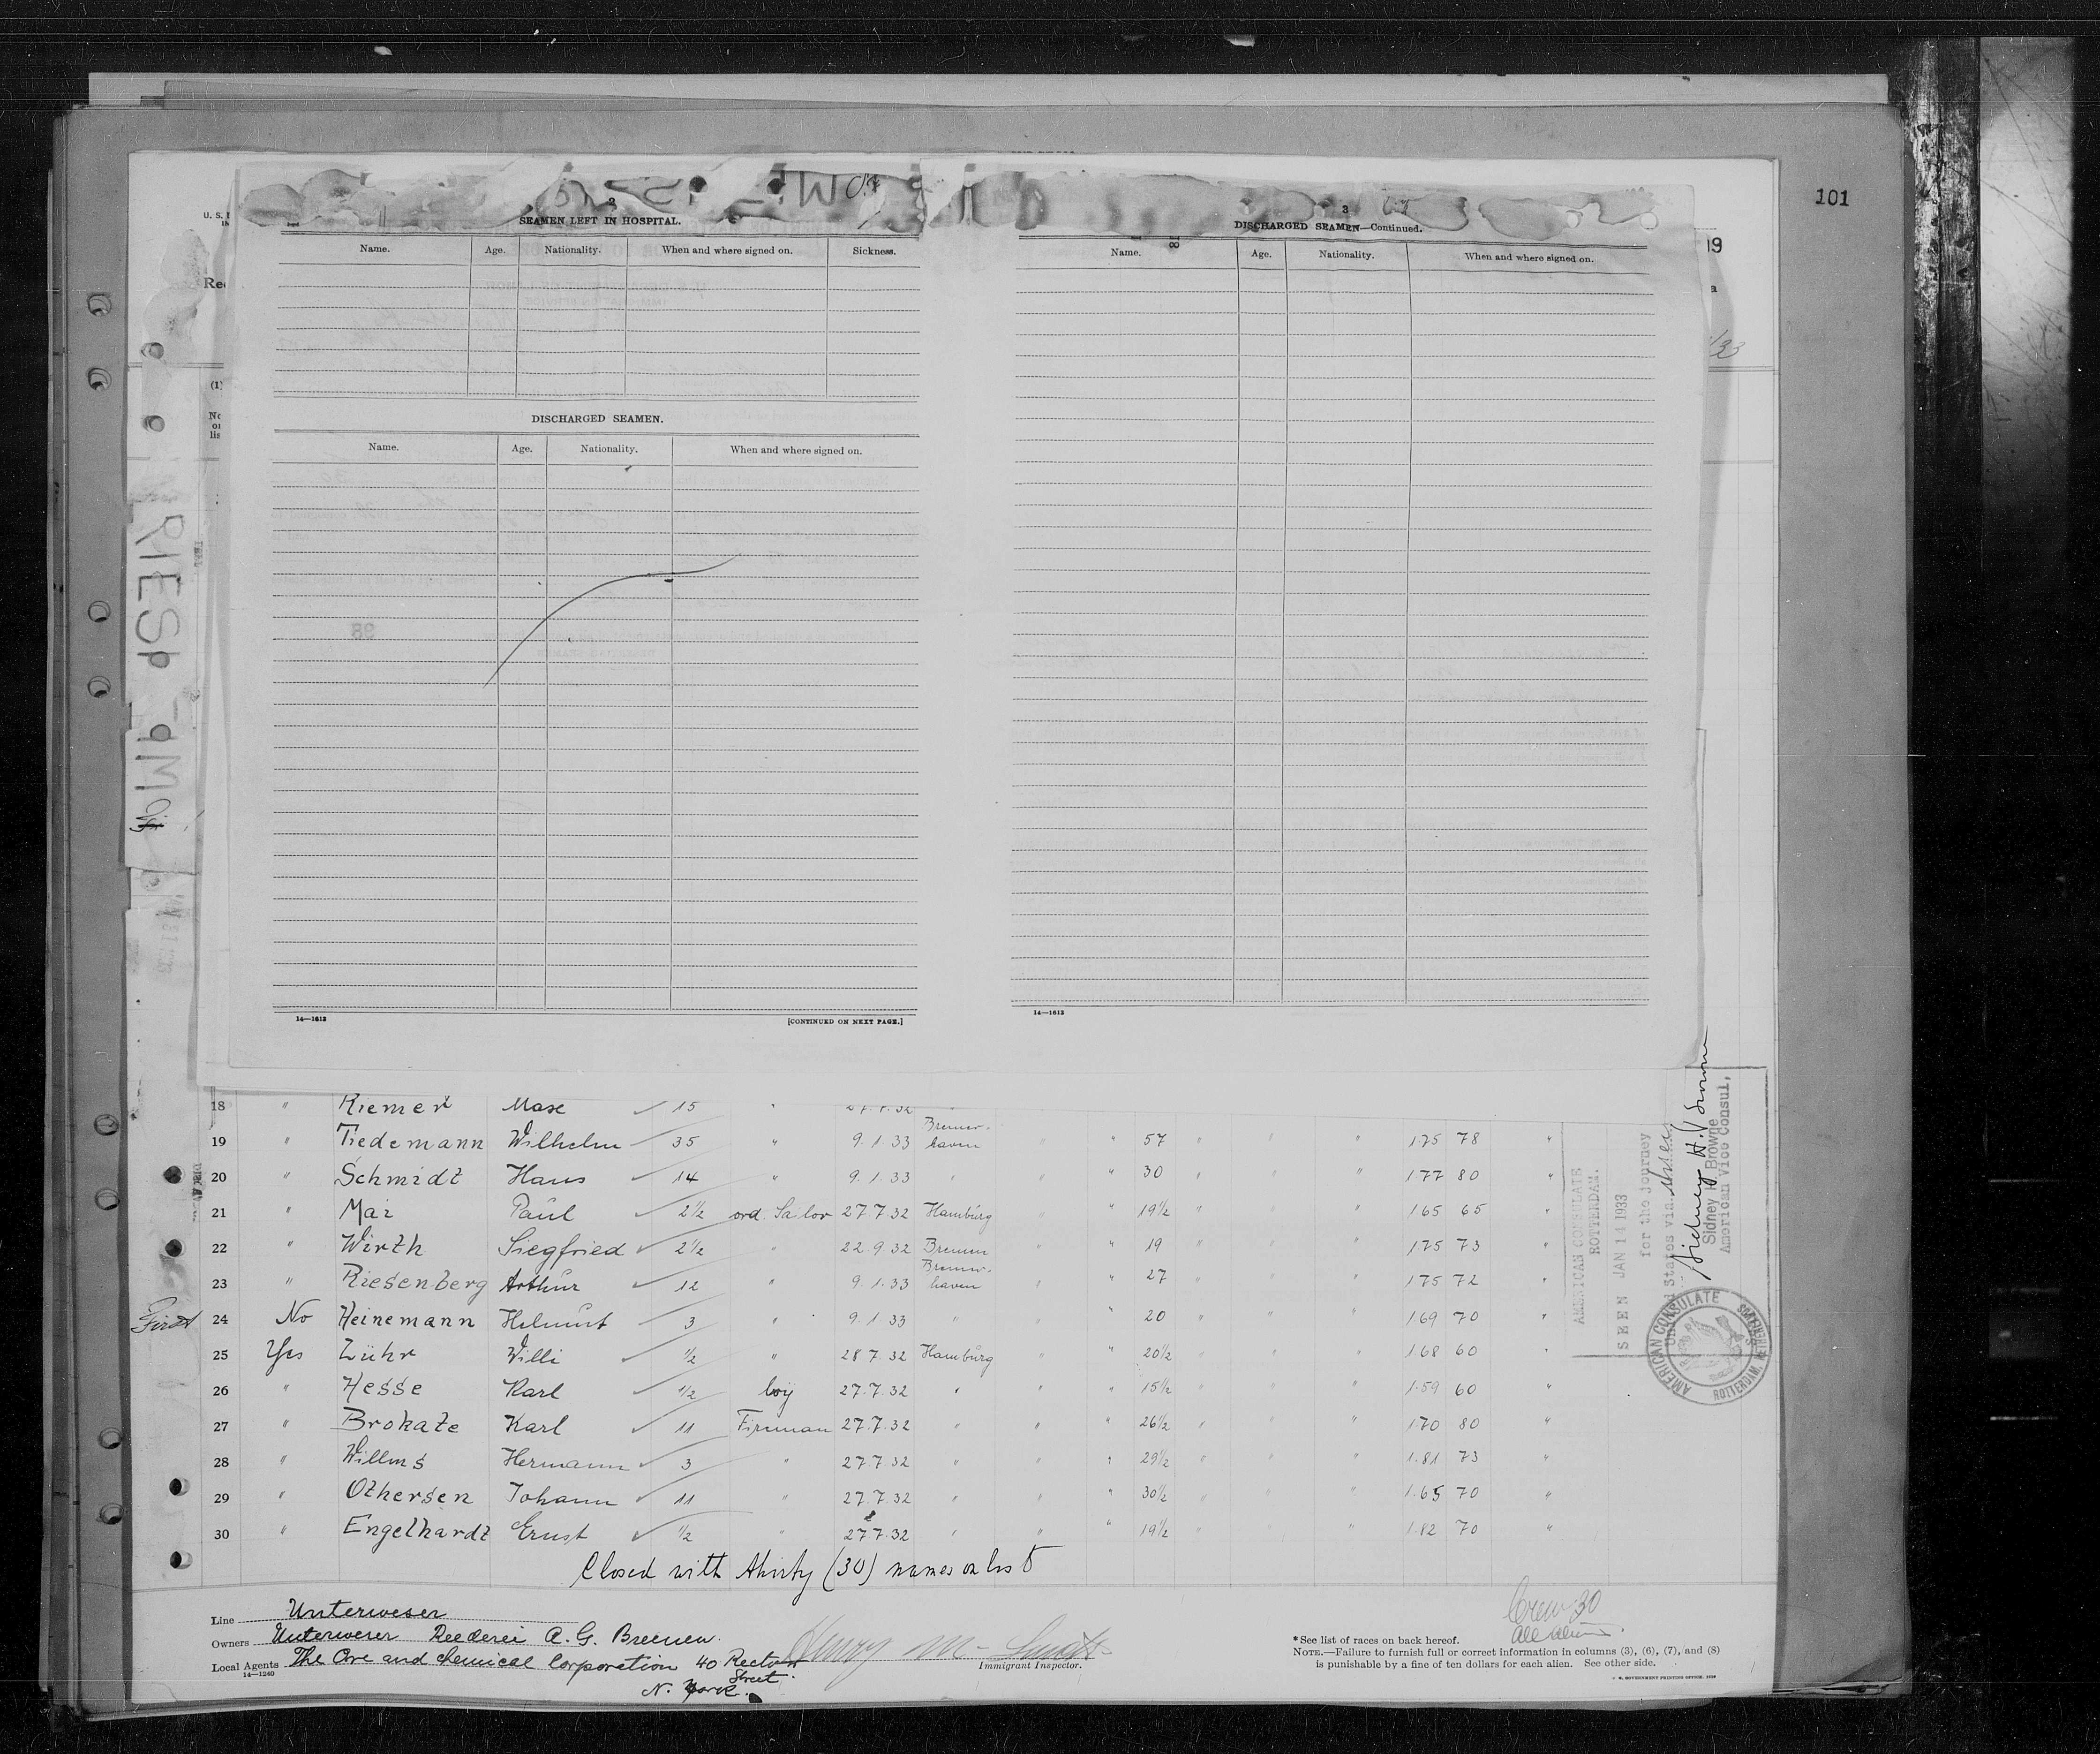 101
U. S.
2
SEAMEN LEFT IN HOSPITAL.
Name. Age. Nationality. When and where signed on. Sickness.
DISCHARGED SEAMEN.
Name. Age. Nationality. When and where signed on.
14—1613
[CONTINUED ON NEXT PAGE.]
3
DISCHARGED SEAMEN—Continued.
Name. Age. Nationality. When and where signed on.
14—1613
18 " Riemer 15 27.7.32
19 " Tiedemann Wilhelm 35 " 9.1.33 Bremerhaven " " 57 " " " 175 78 "
20 " Schmidt Hans 14 " 9.1.33 " " " 30 " " " 177 80 "
21 " Mai Paul 2½ ord. Sailor 27.7.32 Hamburg " " 19½ " " " 165 65 "
22 " Wirth Siegfried 2½ " 22.9.32 Bremen " " 19 " " " 175 73 "
23 " Riesenberg Arthur 12 " 9.1.33 Bremerhaven " " 27 " " " 175 72 "
First 24 No Heinemann Helmut 3 " 9.1.33 " " " 20 " " " 169 70 "
25 Yes Lühr Willi ½ " 28.7.32 Hamburg " " 20½ " " " 168 60 "
26 " Hesse Karl ½ boy 27.7.32 " " " 15½ " " " 1.59 60 "
27 " Brokate Karl 11 Fireman 27.7.32 " " " 26½ " " " 1.70 80 "
28 " Willms Hermann 3 " 27.7.32 " " " 29½ " " " 1.81 73 "
29 " Othersen Johann 11 " 27.7.32 " " " 30½ " " " 1.65 70 "
30 " Engelhardt Ernst ½ " 27.7.32 " " " 19½ " " " 1.82 70 "
Closed with thirty (30) names on list
AMERICAN CONSULATE
ROTTERDAM.
SEEN JAN 11 1933
for the journey
United States via
Sidney H. Browne
Sidney H. Browne
American Vice Consul,
AMERICAN CONSULATE
ROTTERDAM, NETHERLANDS
Line Unterweser
Owners Unterweser Reederei A.G. Bremen.
Local Agents The Ore and chemical Corporation 40 Rector
Street.
N. York.
14—1240
Immigrant Inspector.
Crew 30
All aliens
*See list of races on back hereof.
NOTE.—Failure to furnish full or correct information in columns (3), (6), (7), and (8)
is punishable by a fine of ten dollars for each alien. See other side.